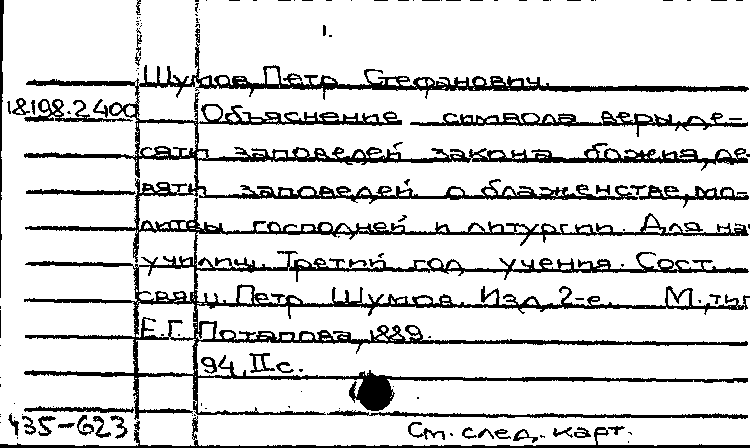 1.
Шумов, Петр Стефанович.
18.198.2.400 Объяснение символа веры, де-
сяти заповедей закона божия, де
вяти заповедей о блаженстве, мо-
литвы господней и литургии. Для нач
училищ. Третий год учения. Сост.
свящ. Петр Шумов. Изд. 2-е. М., тип
Е.Г. Потапова, 1889.
94, II с.
435-623
См. след. карт.